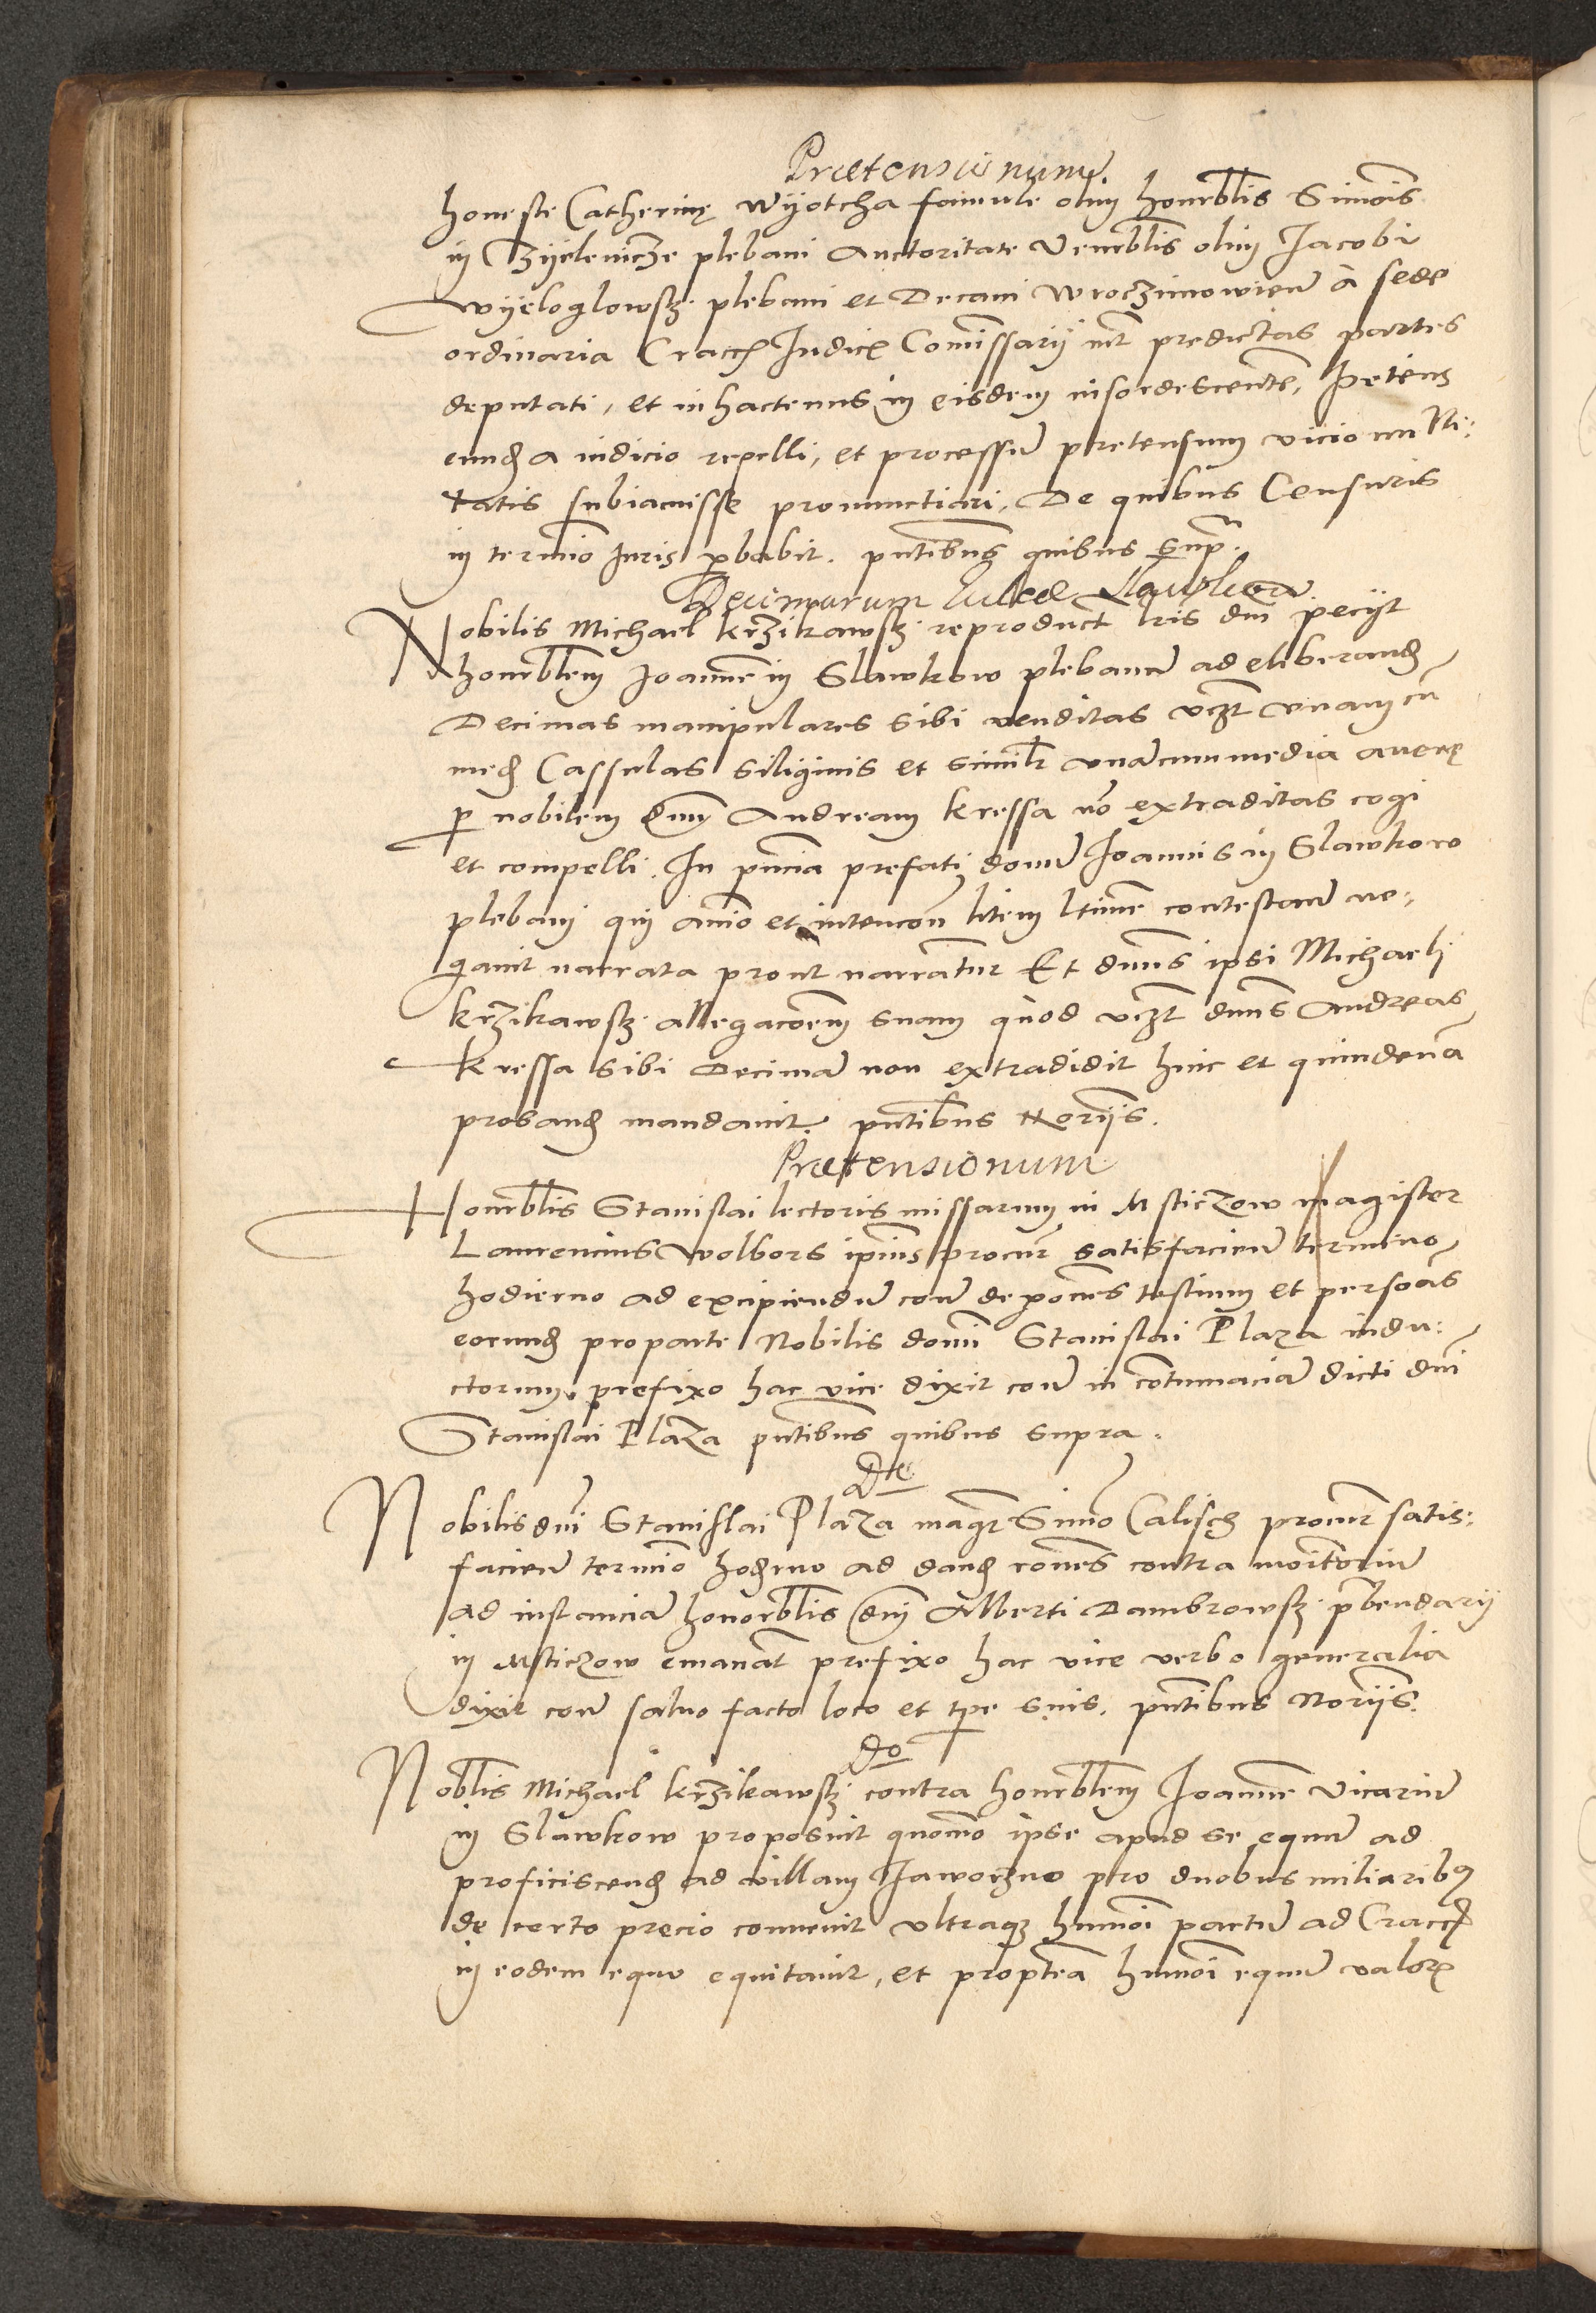 Prætensionum
honeste Catherinę Wyotcha famule olim honorblis Simois
in Czyelenicze plebani Auctoritate Venerblis olim Jacobi
Wyeloglowsky plebani et Decani Wroczimowien a sede
ordinaria Cracoviensi Judicis Comissarij inter predictas partes
deputati, et in hactenus in eisdem insordescente, Petens
eund a iudicio repelli, et processum pretensum vicio nulli:
tatis subiacuisse pronunctiari, De quibus Censuris
in termino Juris probabit. pntibus quibus supra.
Decimarum
Nobilis Michael Krzikawsky reproduct lris dni peciyt
honorblem Joannem in Slawkow plebanum ad eliberand
Decimas manipulares sibi venditas vczt vnam cum
med Cassulas siliginis et similr vnacummedia avenę
per nobilem dnum Andream Kressa no extraditas cogi
et compelli. In pncia prefati domini Joannis in Slawkow
plebani qui animo et intencione litem ltime contestan ne:
gavit narrata prout narrantur Et dnus ipsi Michaeli
Krzikawsky allegacoem suam quod vczt dnus Andreas
Kressa sibi Decimam non extradidit hinc et quindena
proband mandavit. pntibus Noriis.
Prætensionum
Honorblis Stanislai lectoris missarum in Msticzow magister
Laurencius Wolbors ipius procur satisfacien termino
hodierno ad excipiendum contra depones testium et personas
eorund proparte Nobilis domini Stanislai Plaza indu:
ctorum, prefixo hac vice dixit contra in contumaciam dicti dni
Stanislai Plaza pntibus quibus supra.
Dte
Nobilis dni Stanislai Plaza magr Simon Calisch procur satis:
facien termino hodierno ad dand rones contra monitorium
ad instanciam honorblis dni Alberti Dambrowsky prebendarij
in Msticzow emanat prefixo hac vice verbo generalia
dixit contra salvo facto loco et tpe suis. pntibus Noriis.
Do
Noblis Michael Krzikawsky contra honorblem Joannem Vicarium
in Slawkow proposuit quomo ipse apud se equum ad
proficiscend ad villam Jaworzno pro duobus miliaribus
de certo precio convenit vltraque hmoi pactum ad Craccoviam
in eodem equo equitavit, et propterea hmoi equum valoris